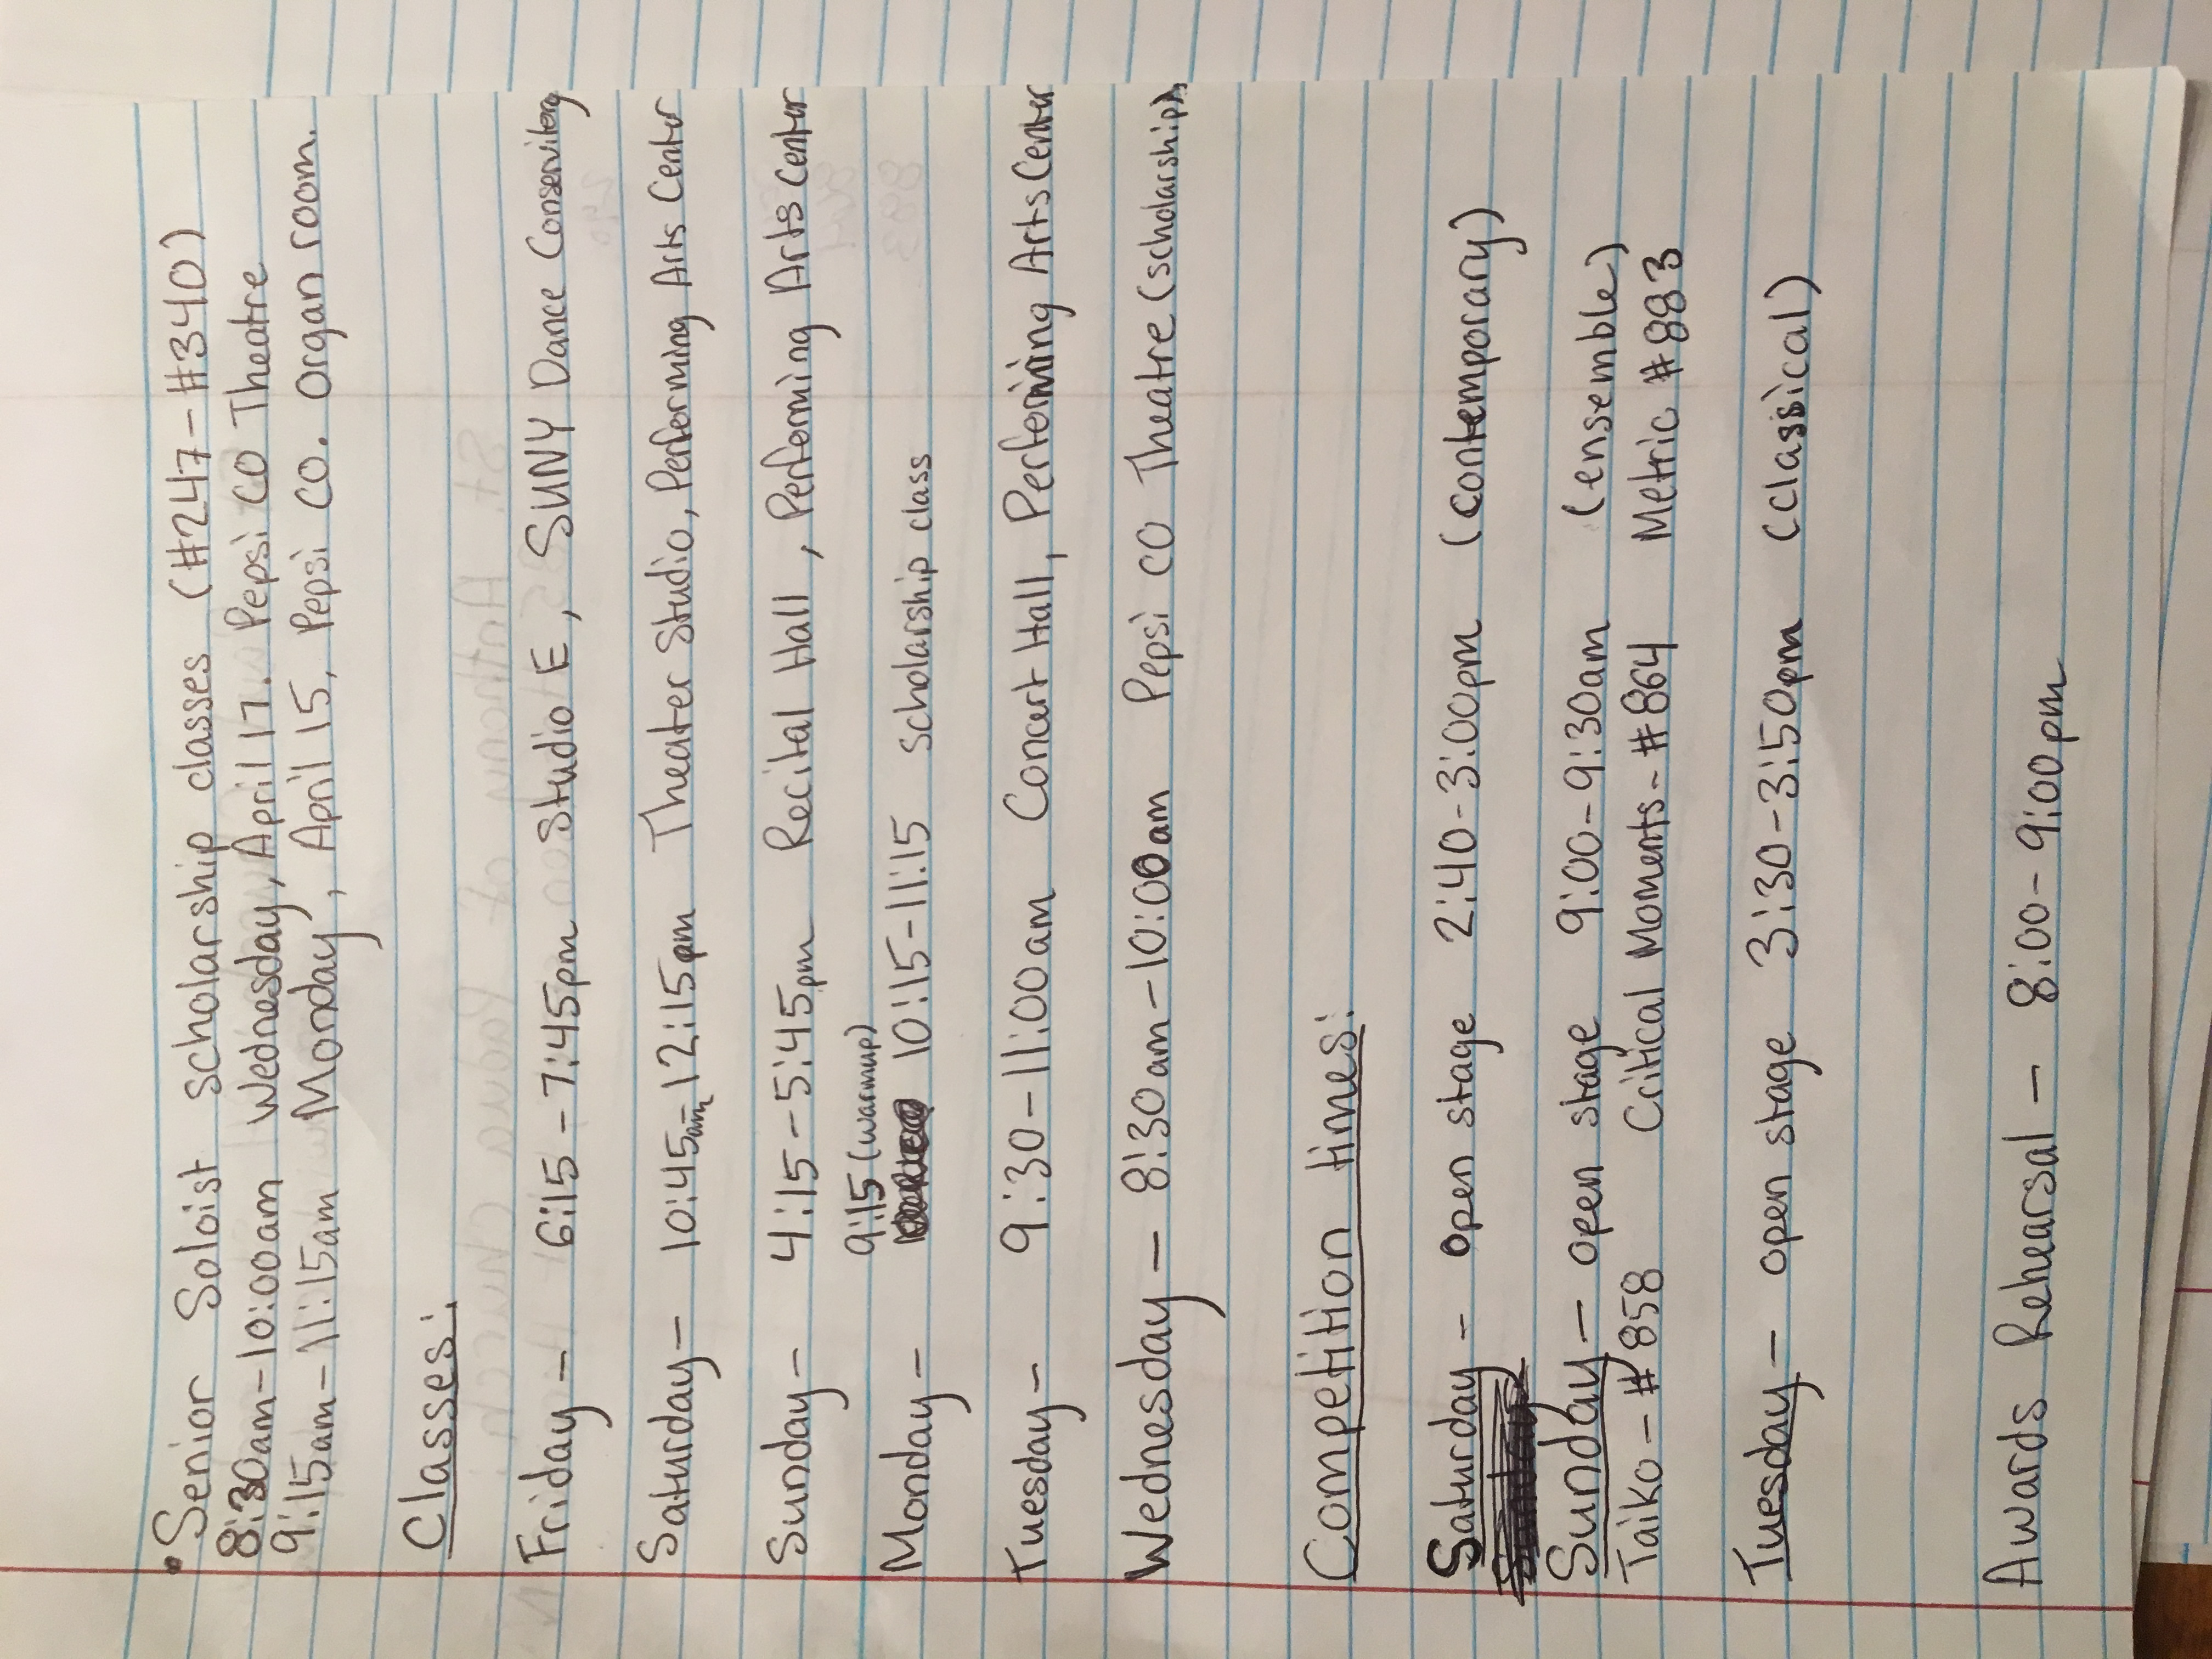 •Senior Soloist scholarship classes (#247-#340)
8:30am-10:00am Wednesday, April 17. Pepsi CO Theatre
9:15am-11:15am Monday, April 15, Pepsi CO. Organ room.
Classes:
Friday- 6:15-7:45pm Studio E, SUNY Dance Conservitory
Saturday- 10:45am-12:15pm Theater Studio, Performing Arts Center
Sunday- 4:15-5:45pm Recital Hall, Performing Arts Center
9:15(warmup)
Monday- 10:15-11:15 scholarship class
Tuesday- 9:30-11:00am Concert Hall, Performing Arts Center
Wednesday- 8:30am-10:00am Pepsi CO Theatre (scholarship)
Competition times:
Saturday- open stage 2:40-3:00pm (contemporary)
Sunday- open stage 9:00-9:30am (ensemble)
Taiko-#858 Critical Moments-#864 Metric #883
Tuesday- open stage 3:30-3:50pm (classical)
Awards Rehearsal- 8:00-9:00pm